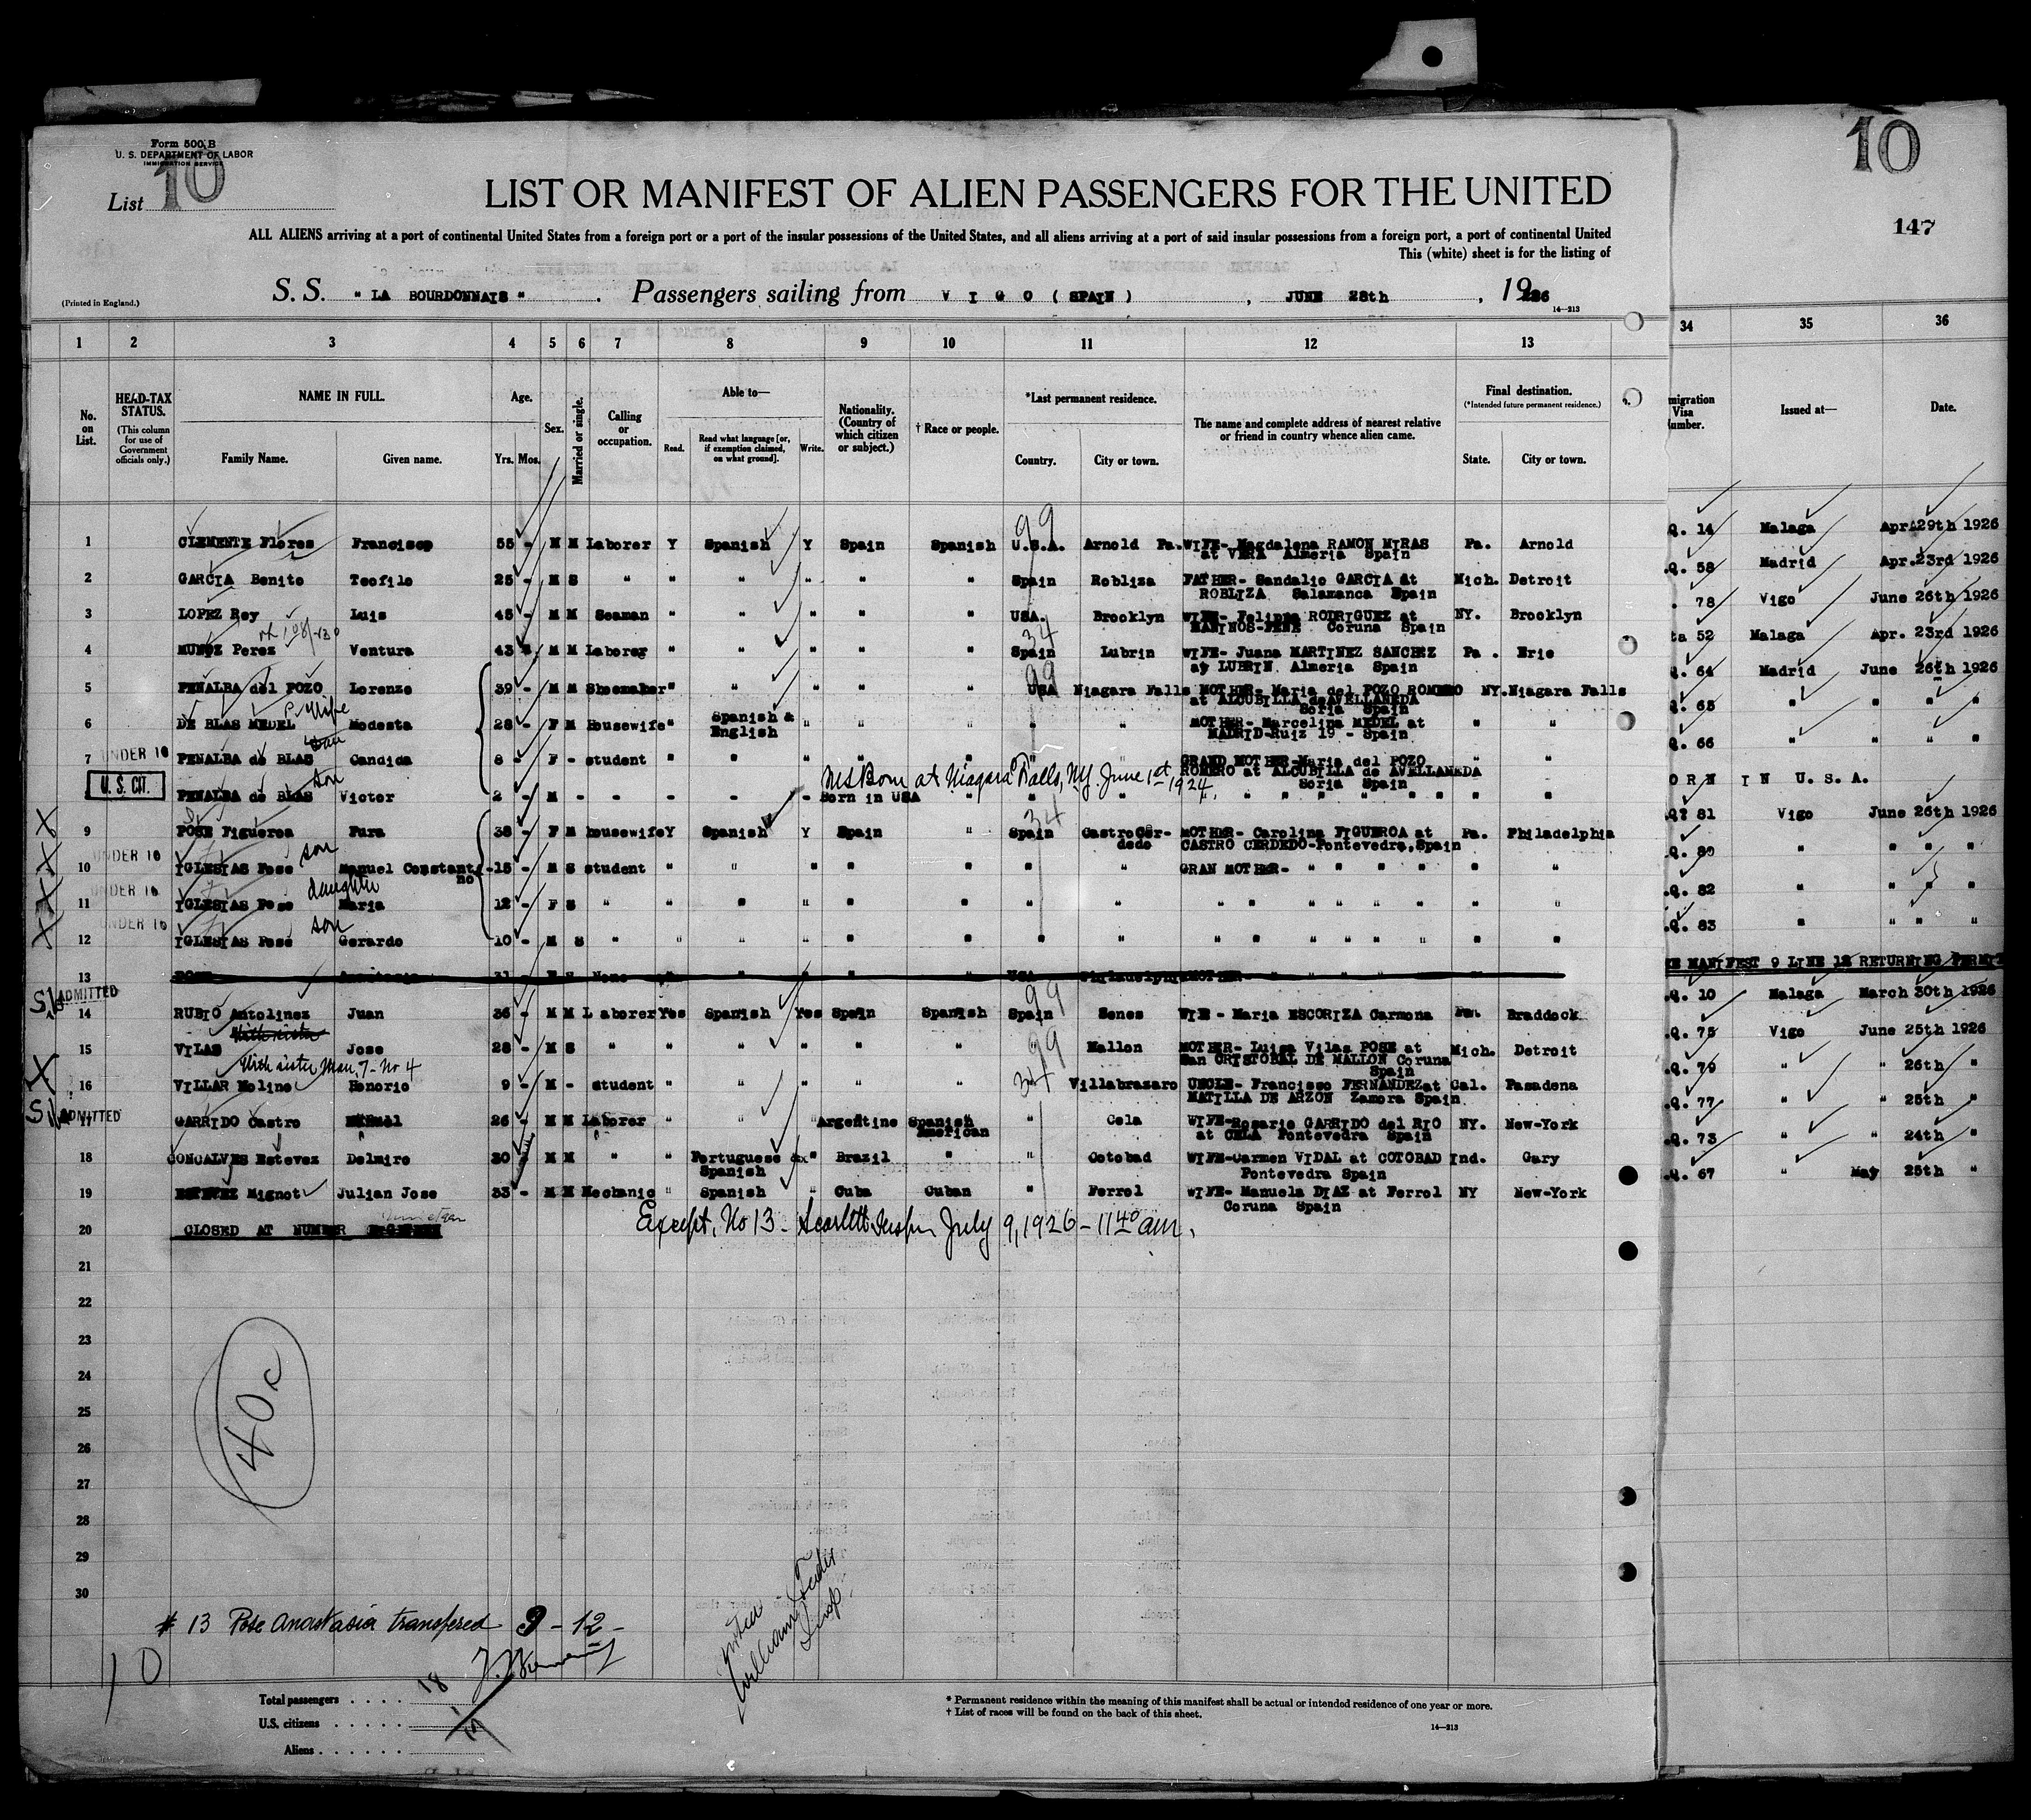 Form 500 B
U. S. DEPARTMENT OF LABOR
IMMIGRATION SERVICE
List 10
10
147
LIST OR MANIFEST OF ALIEN PASSENGERS FOR THE UNITED
ALL ALIENS arriving at a port of continental United States from a foreign port or a port of the insular possessions of the United States, and all aliens arriving at a port of said insular possessions from a foreign port, a port of continental United
This (white) sheet is for the listing of
(Printed in England.)
S. S. " LA BOURDONNAIS " . Passengers sailing from V I G O ( SPAIN ) , JUNE 28th , 1926
14—213
1 2 3 4 5 6 7 8 9 10 11 12 13 34 35 36
No. on List.
HEAD-TAX STATUS. (This column for use of Government officials only.)
NAME IN FULL.
Family Name. Given name.
Age. Yrs. Mos.
Sex.
Married or single.
Calling or occupation.
Able to—
Read. Read what language [or, if exemption claimed, on what ground]. Write.
Nationality. (Country of which citizen or subject.)
† Race or people.
*Last permanent residence.
Country. City or town.
The name and complete address of nearest relative or friend in country whence alien came.
Final destination.
(*Intended future permanent residence.)
State. City or town.
migration Visa umber.
Issued at—
Date.
99
1 CLEMENTE Flores Francisco 55 - M M Laborer Y Spanish Y Spain Spanish U.S.A. Arnold Pa. WIFE- Magdalena RAMON MIRAS at VERA Almeria Spain Pa. Arnold Q. 14 Malaga Apr. 29th 1926
2 GARCIA Benito Teofilo 25 - M S " " " " " " Spain Robliza FATHER- Sandalio GARCIA at ROBLIZA Salamanca Spain Mich. Detroit Q. 58 Madrid Apr. 23rd 1926
3 LOPEZ Rey Luis 45 - M M Seaman " " " " " USA. Brooklyn WIFE- Felippa RODRIGUEZ at Coruna Spain NY. Brooklyn . 78 Vigo June 26th 1926
34
4 MUNOZ Perez Ventura 43 M M Laborer " " " " " Spain Lubrin WIFE- Juana MARTINEZ SANCHEZ at LUBRIN Almeria Spain Pa . Erie ta 52 Malaga Apr. 23rd 1926
99
5 PENALBA del POZO Lorenzo 39 - M M Shoemaker " " " " " USA Niagara Falls MOTHER- Maria del POZO ROMERO at ALCUBILLA de AVELLANEDA Soria Spain NY. Niagara Falls Q. 64 Madrid June 26th 1926
wife
6 DE BLAS MEDEL Modesta 28 - F M Housewife " Spanish & English " " " " " MOTHER- Marcelina MEDEL at MADRID-Ruiz 19 - Spain " " Q. 65 " " "
UNDER 16
7 PENALBA de BLAS Candida 8 - F - student " " " " " " " GRAND MOTHER-Maria del POZO ROMERO at ALCUBILLA de AVELLAMEDA Soria Spain " " Q. 66 " " "
U. S. CIT.
son
Born at Niagara Falls, N.Y. June 1st 1924
PENALBA de BLAS Victor 2 - M - - - - - Born in USA " " " " " " " " " " ORN IN U. S. A.
34
X 9 POSE Figueroa Pura 38 - F M housewife Y Spanish Y Spain " Spain Castro Cerdedo MOTHER- Carolina FIGUEROA at CASTRO CERDEDO-Pontevedra, Spain Pa. Philadelphia Q? 81 Vigo June 26th 1926
X UNDER 16 son
10 IGLESIAS Pose Manuel Constantino 15 - M S student " " " " " " " GRAN MOTHER- " " " " " " Q. 80 " " "
X UNDER 16 daughter
11 IGLESIAS Pose Maria 12 - F S " " " " " " " " " " " " " " " " Q. 82 " " "
X UNDER 16 son
12 IGLESIAS Pose Gerardo 10 - M S " " " " " " " " " " " " " " " " Q. 83 " " "
13 31 None " " " " USA Philadelphia MOTHER- MANIFEST 9 LINE 12 RETURNING PERMIT
S.I. ADMITTED 99
14 RUBIO Antolinez Juan 36 - M M Laborer Yes Spanish Yes Spain Spanish Spain Senes WIE - Maria ESCORIZA Carmona Braddock Q. 10 Malaga March 30th 1926
99
15 VILAS Jose 28 - M S " " " " " " " Mallon MOTHER- Luisa Vilas POSE at San CRISTOBAL DE MALLON Coruna Spain Mich. Detroit Q. 75 Vigo June 25th 1926
With sister Man. 7 - No 4
34
X 16 VILLAR Molino Honorio 9 - M - student " " " " " Villabrazaro UNCLE- Francisco FERNANDEZ at MATILLA DE ARZON Zamora Spain Cal. Pasadena Q. 79 " " 26th "
S.I. ADMITTED
17 GARRIDO Castro Manuel 26 - M M Laborer " " " Argentine Spanish American " Cela WIFE-Rosario GARRIDO del RIO at CELA Pontevedra Spain NY. New-York Q. 77 " " 25th "
18 GONCALVES Estevez Delmiro 30 M M " " Portuguese & Spanish " Brazil " " Cotobad WIFE-Carmen VIDAL at COTOBAD Pontevedra Spain Ind. Gary Q. 73 " " 24th "
19 ESTEVEZ Mignot Julian Jose 33 - M M Mechanic " Spanish " Cuba Cuban " Ferrol WIFE- Manuela DIAZ at Ferrol Coruna Spain NY New-York Q. 67 " May 25th "
20 CLOSED AT NUMBER
Except, No 13 - July 9, 1926 - 11 40 am.
21
22
23
24
25
26
27
28
29
30
40c
# 13 Pose Anastasia transfered 9 - 12 -
10
Total passengers . . . . 18
U.S. citizens . . . . .
Aliens . . . . . .
* Permanent residence within the meaning of this manifest shall be actual or intended residence of one year or more.
† List of races will be found on the back of this sheet.
14—213